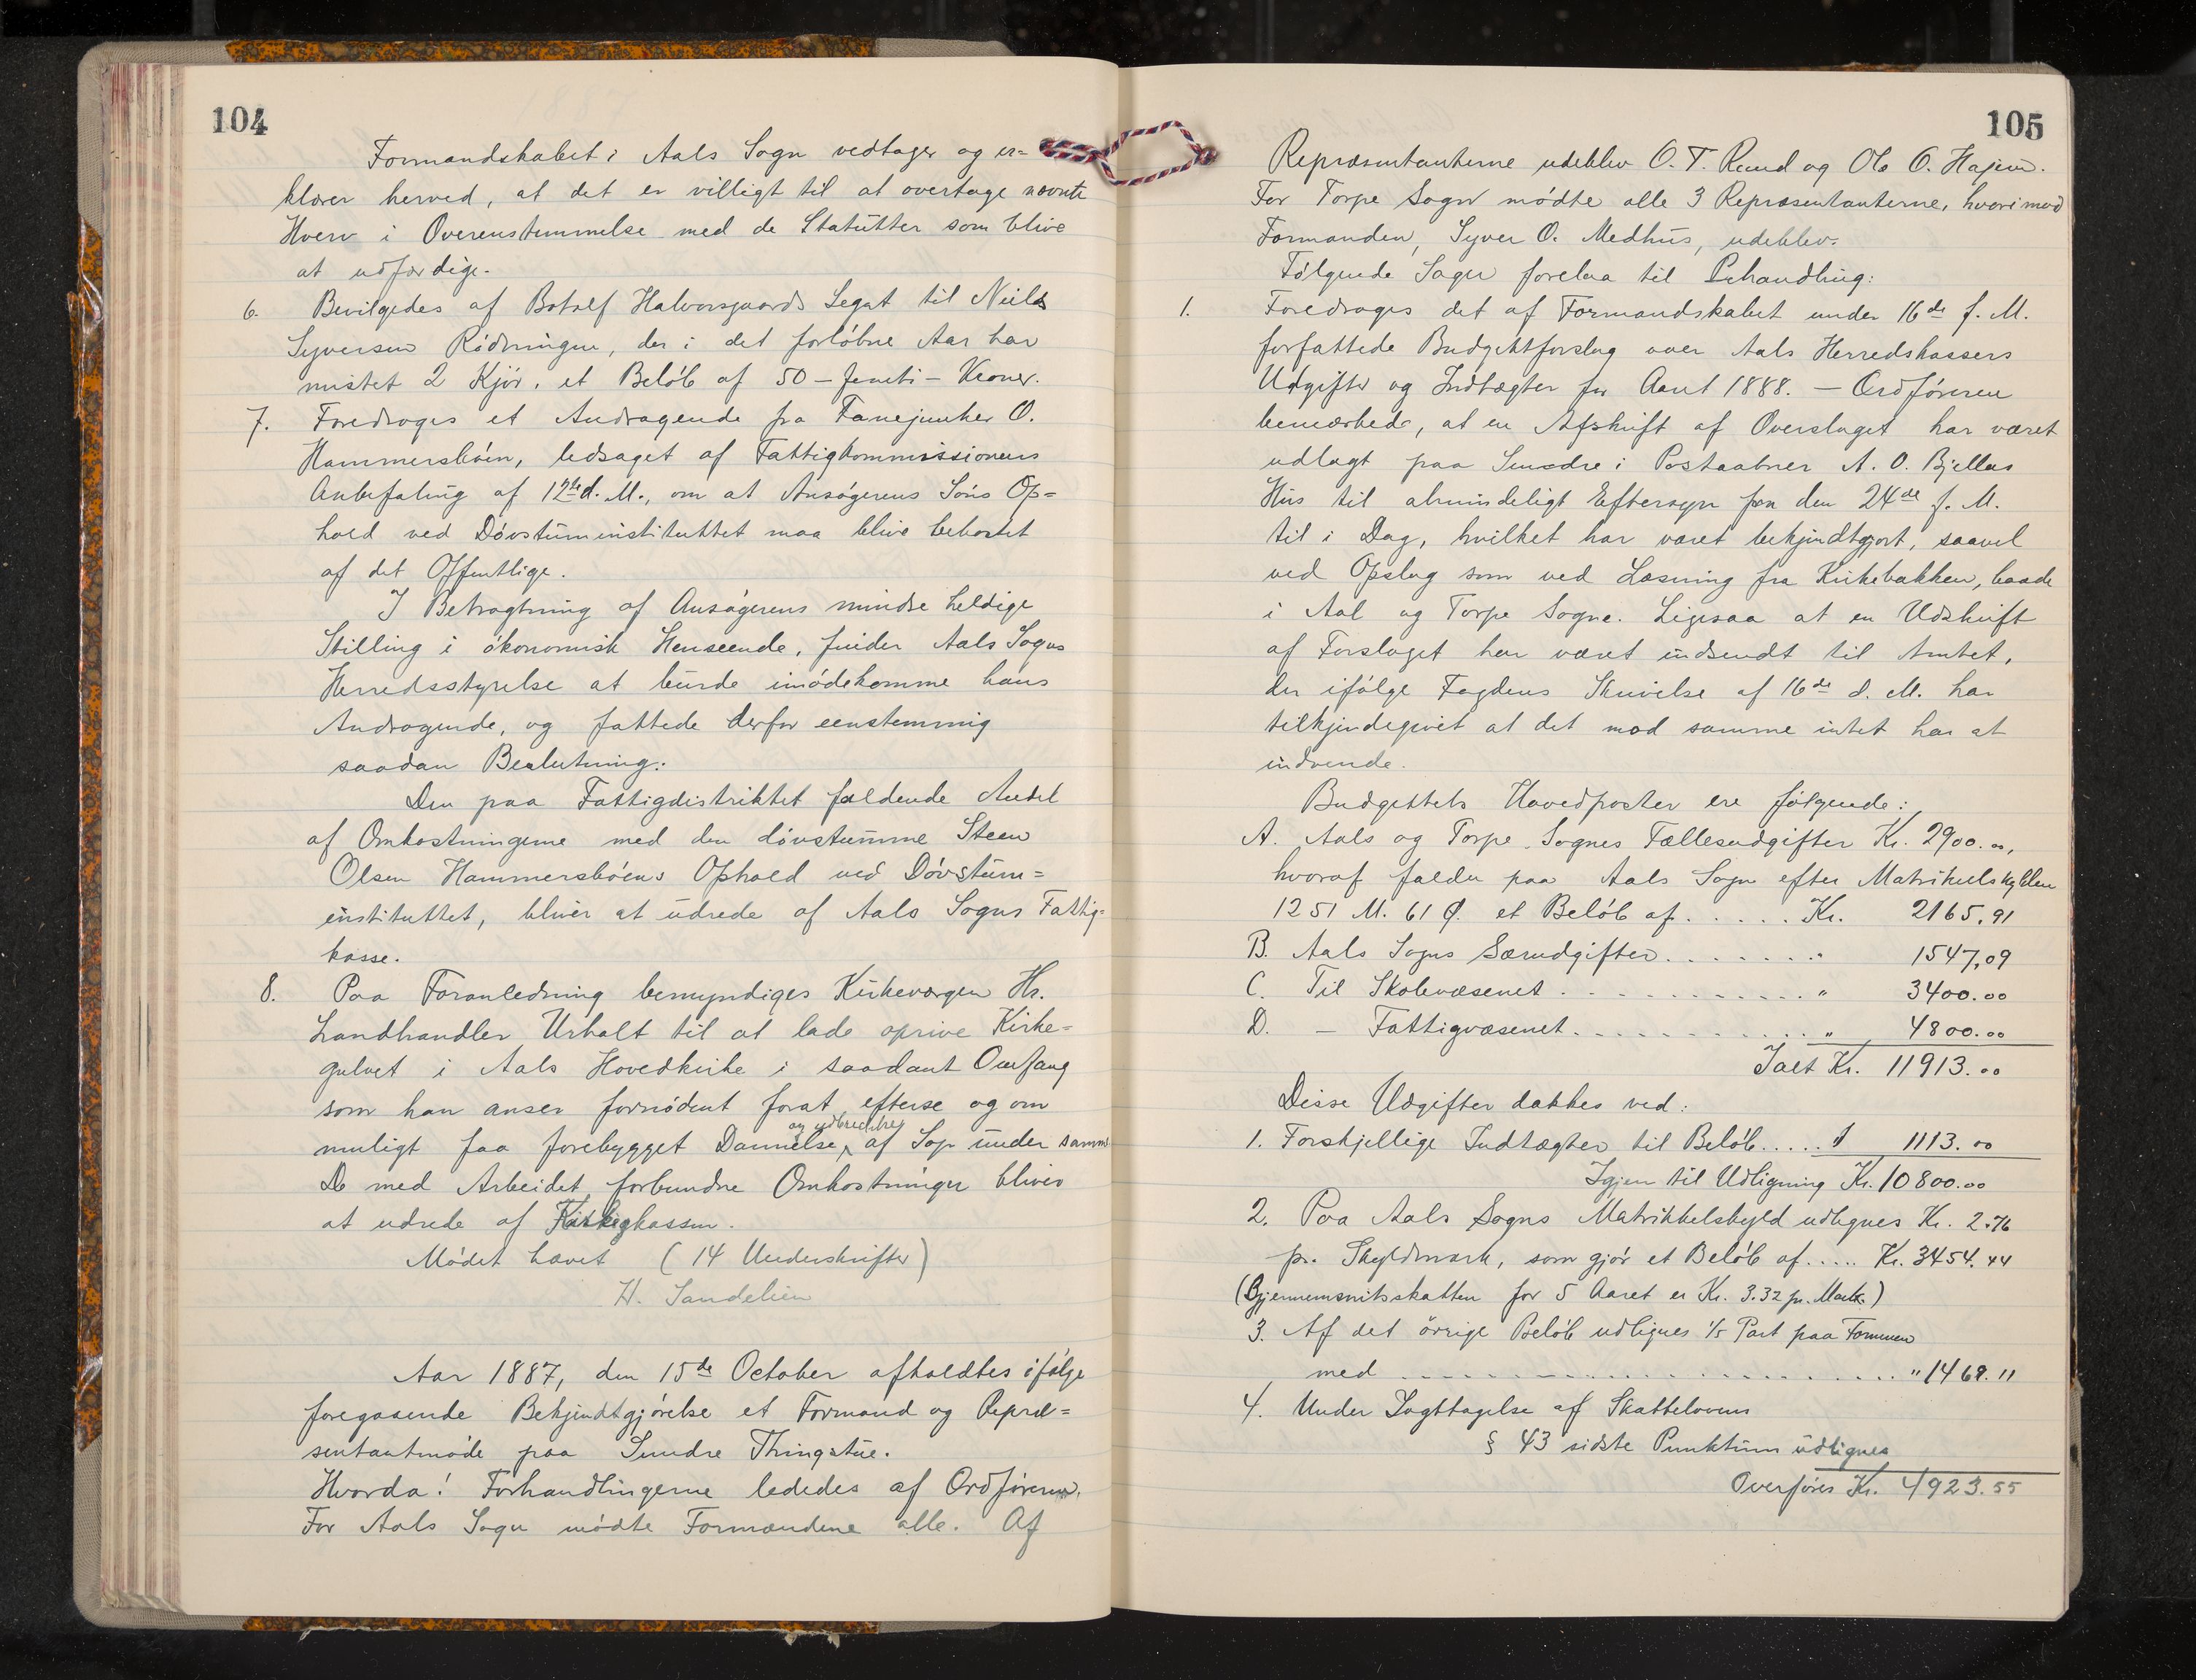 104
Formandskabet i Aals Sogn vedtager og er=
klærer herved, at det er villigt til at overtage nævnte
Hverv i Overenstemmelse med de Statutter som blive
at udfærdige.
6. Bevilgedes af Botolf Halvorsgaards Legat til Neils
Syversen Rödningen, der i det forløbne Aar har
mistet 2 Kjör, et Beløb af 50 - femti - Kroner.
7. Foredroges et Andragende fra Fanejunker O.
Hammersböen, ledsaget af Fattigkommissionens
Anbefaling af 12te d. M., om at Ansögerens Söns Op=
hold ved Dövstuminstituttet maa blive bekostet
af det Offentlige.
I Betragtning af Ansögerens mindre heldige
Stilling i ökonomisk Henseende, finder Aals Sogns
Herredsstyrelse at burde imödekomme hans
Andragende, og fattede derfor eenstemmig
saadan Beslutning:
Den paa Fattigdistriktet faldende Andel
af Omkostningerne med den dövstumme Steen
Olsen Hammersböens Ophold ved Dövstum=
instituttet, bliver at udrede af Aals Sogns Fattig=
kasse.
8. Paa Foranledning bemyndiges Kirkeværgen Hr.
Landhandler Urhalt til at lade oprive Kirke=
gulvet i Aals Hovedkirke i saadant Omfang
som han anser fornödent forat efterse og om
og udbredelse
muligt faa forebygget Dannelse af Sop under samme
De med Arbeidet forbundne Omkostninger bliver
at udrede af Kirkekassen.
Mödet hævet (14 Underskrifter)
H. Sandelien
Aar 1887, den 15de October afholdtes ifölge
foregaaende Bekjendtgjörelse et Formand og Repræ=
sentantmöde paa Sundre Thingstue.
Hvorda! Forhandlingerne lededes af Ordföreren.
For Aals Sogn mödte Formændene alle. Af
105
Repræsentanterne udeblev O. T. Rund og Ole O. Hajem.
For Torpe Sogn mödte alle 3 Repræsentanterne, hvorimod
Formanden, Syver O. Medhus, udeblev.
Fölgende Sager forelaa til Behandling:
1. Foredroges det af Formandskabet under 16de f. M.
forfattede Budgetforslag over Aals Herredskassers
Udgifter og Indtægter for Aaret 1888. — Ordföreren
bemærkede, at en Afskrift af Overslaget har været
udlagt paa Sundre i Postaabner A. O. Bjellas
Hus til almindeligt Eftersyn fra den 24de f. M.
til i Dag, hvilket har været bekjendtgjort, saavel
ved Opslag som ved Læsning fra Kirkebakken, baade
i Aal og Torpe Sogne. Ligesaa at en Udskrift
af Forslaget har været indsendt til Amtet,
der ifölge Fogdens Skrivelse af 16de d. M. har
tilkjendegivet at det mod samme intet har at
indvende.
Budgettets Hovedposter ere fölgende:
A. Aals og Torpe Sognes Fællesudgifter Kr. 2900.00,
hvoraf falder paa Aals Sogn efter Matrikulskylden
1251 M. 61 Ø. et Belöb af ..... Kr. 2165.91
B. Aals Sogns Særudgifter ....... " 1547,09
C. Til Skolevæsenet ............ " 3400.00
D. — Fattigvæsenet ............ " 4800.00
Ialt Kr. 11913.00
Disse Udgifter dækkes ved:
1. Forskjellige Indtægter til Belöb ..... " 1113.00
Igjen til Udligning Kr. 10800.00
2. Paa Aals Sogns Matrikkelskyld udlignes Kr. 2.76
pr. Skyldmark, som gjör et Belöb af ..... Kr. 3454.44
(Gjennemsnitsskatten for 5 Aaret er Kr. 3.32 pr. Mark.)
3. Af det övrige Belöb udlignes 1/5 Part paa Formuen
med ........................ " 1469.11
4. Under Iagttagelse af Skattelovens
§ 43 sidste Punktum udlignes
Overföres Kr. 4923.55